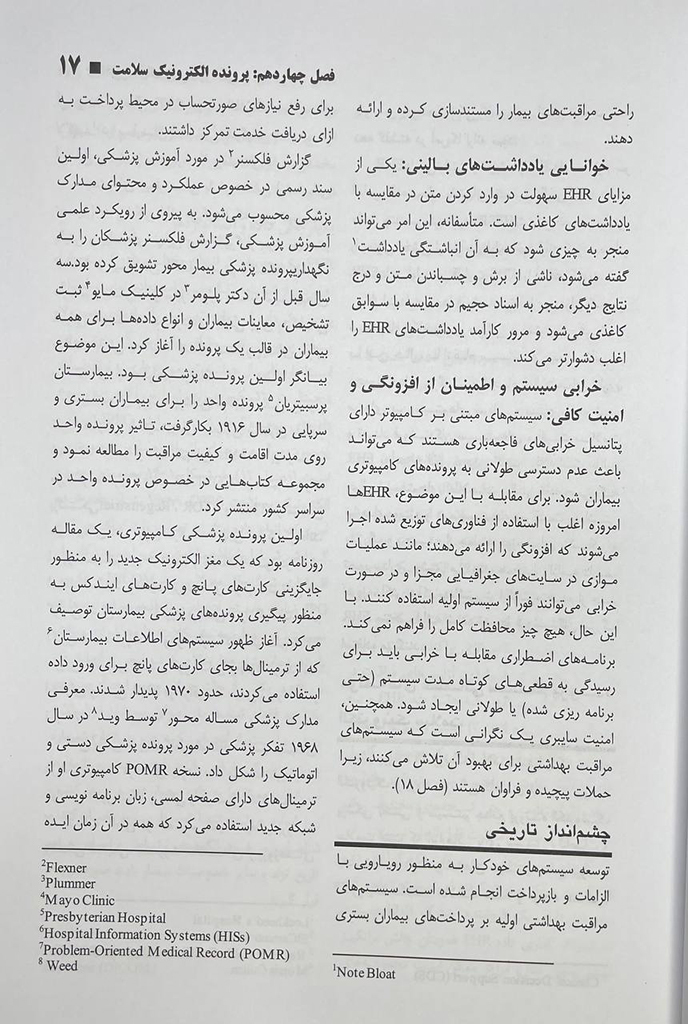 فصل چهاردهم: پرونده الکترونیک سلامت ■ ۱۷
راحتی مراقبت‌های بیمار را مستندسازی کرده و ارائه
دهند.
خوانایی یادداشت‌های بالینی: یکی از
مزایای EHR سهولت در وارد کردن متن در مقایسه با
یادداشت‌های کاغذی است. متأسفانه، این امر می‌تواند
منجر به چیزی شود که به آن انباشتگی یادداشت¹
گفته می‌شود، ناشی از برش و چسباندن متن و درج
نتایج دیگر، منجر به اسناد حجیم در مقایسه با سوابق
کاغذی می‌شود و مرور کارآمد یادداشت‌های EHR را
اغلب دشوارتر می‌کند.
خرابی سیستم و اطمینان از افزونگی و
امنیت کافی: سیستم‌های مبتنی بر کامپیوتر دارای
پتانسیل خرابی‌های فاجعه‌باری هستند که می‌تواند
باعث عدم دسترسی طولانی به پرونده‌های کامپیوتری
بیماران شود. برای مقابله با این موضوع، EHRها
امروزه اغلب با استفاده از فناوری‌های توزیع شده اجرا
می‌شوند که افزونگی را ارائه می‌دهند؛ مانند عملیات
موازی در سایت‌های جغرافیایی مجزا و در صورت
خرابی می‌توانند فوراً از سیستم اولیه استفاده کنند. با
این حال، هیچ چیز محافظت کامل را فراهم نمی‌کند.
برنامه‌های اضطراری مقابله با خرابی باید برای
رسیدگی به قطعی‌های کوتاه مدت سیستم (حتی
برنامه ریزی شده) یا طولانی ایجاد شود. همچنین،
امنیت سایبری یک نگرانی است که سیستم‌های
مراقبت بهداشتی برای بهبود آن تلاش می‌کنند، زیرا
حملات پیچیده و فراوان هستند (فصل ۱۸).
چشم‌انداز تاریخی
توسعه سیستم‌های خودکار به منظور رویارویی با
الزامات و بازپرداخت انجام شده است. سیستم‌های
مراقبت بهداشتی اولیه بر پرداخت‌های بیماران بستری
¹Note Bloat
برای رفع نیازهای صورتحساب در محیط پرداخت به
ازای دریافت خدمت تمرکز داشتند.
گزارش فلکسنر² در مورد آموزش پزشکی، اولین
سند رسمی در خصوص عملکرد و محتوای مدارک
پزشکی محسوب می‌شود. به پیروی از رویکرد علمی
آموزش پزشکی، گزارش فلکسنر پزشکان را به
نگهداریپرونده پزشکی بیمار محور تشویق کرده بود.سه
سال قبل از آن دکتر پلومر³ در کلینیک مایو⁴ ثبت
تشخیص، معاینات بیماران و انواع داده‌ها برای همه
بیماران در قالب یک پرونده را آغاز کرد. این موضوع
بیانگر اولین پرونده پزشکی بود. بیمارستان
پرسبیتریان⁵ پرونده واحد را برای بیماران بستری و
سرپایی در سال ۱۹۱۶ بکارگرفت، تاثیر پرونده واحد
روی مدت اقامت و کیفیت مراقبت را مطالعه نمود و
مجموعه کتاب‌هایی در خصوص پرونده واحد در
سراسر کشور منتشر کرد.
اولین پرونده پزشکی کامپیوتری، یک مقاله
روزنامه بود که یک مغز الکترونیک جدید را به منظور
جایگزینی کارت‌های پانچ و کارت‌های ایندکس به
منظور پیگیری پرونده‌های پزشکی بیمارستان توصیف
می‌کرد. آغاز ظهور سیستم‌های اطلاعات بیمارستان⁶
که از ترمینال‌ها بجای کارت‌های پانچ برای ورود داده
استفاده می‌کردند، حدود ۱۹۷۰ پدیدار شدند. معرفی
مدارک پزشکی مساله محور⁷ توسط وید⁸ در سال
۱۹۶۸ تفکر پزشکی در مورد پرونده پزشکی دستی و
اتوماتیک را شکل داد. نسخه POMR کامپیوتری او از
ترمینال‌های دارای صفحه لمسی، زبان برنامه نویسی و
شبکه جدید استفاده می‌کرد که همه در آن زمان ایده
²Flexner
³Plummer
⁴Mayo Clinic
⁵Presbyterian Hospital
⁶Hospital Information Systems (HISs)
⁷Problem-Oriented Medical Record (POMR)
⁸ Weed